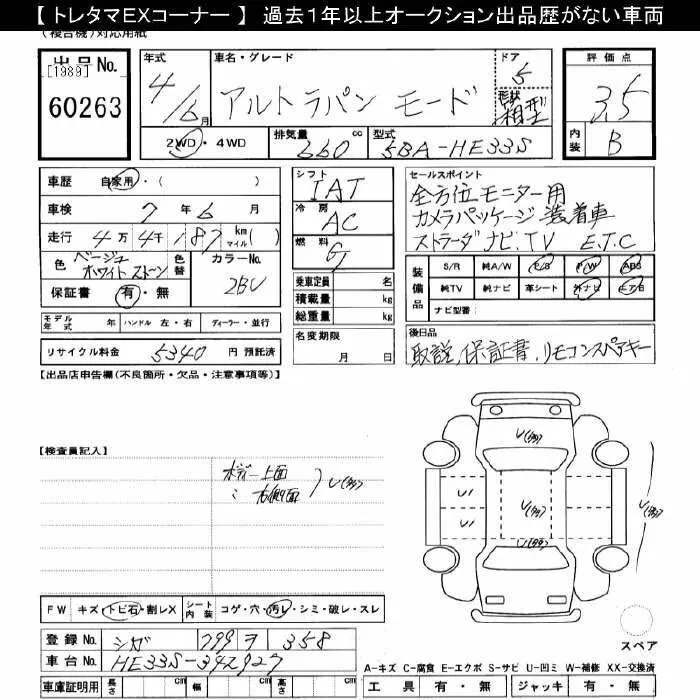 【 トレタマEXコーナー 】 過去1年以上オークション出品歴がない車両
(複合機)対応用紙
出品No.
[1989]
60263
年式
4/6月
車名・グレード
アルトラパン モード
ドア
5
形状
箱型
2WD・4WD
排気量
660cc
型式
5BA-HE33S
評価点
3.5
内装
B
車歴 自家用・( )
車検 7年6月
走行 4万4千187km マイル( )
色 ベージュ ホワイトストーン
色替
カラーNo.
2BU
保証書 有・無
モデル年式 年 ハンドル 左・右 ディーラー・並行
リサイクル料金 5340円 預託済
シフト
IAT
冷房
AC
燃料
G
乗車定員 名
積載量 kg
総重量 kg
名変期限
月 日
セールスポイント
全方位モニター用
カメラパッケージ装着車
ストラーダナビ.TV E.T.C
装備品
S/R 純A/W P/S P/W ABS
純TV 純ナビ 革シート 外ナビ エアB
ナビ型番( )
後日品
取説,保証書,リモコンスペアキー
【出品店申告欄(不良箇所・欠品・注意事項等)】
【検査員記入】
ボディー上面
〃 右側面
U(多)
U(多)
U'
U(多)
U'
U(多)
U(多)
FW キズ・トビ石・割レX シート内装 コゲ・穴・汚レ・シミ・破レ・スレ
登録No. シガ 799 ヲ 358
車台No. HE33S-342927
車庫証明用 長さ cm 幅 cm 高さ cm
スペア
A-キズ C-腐食 E-エクボ S-サビ U-凹ミ W-補修 XX-交換済
工具 有・無 ジャッキ 有・無